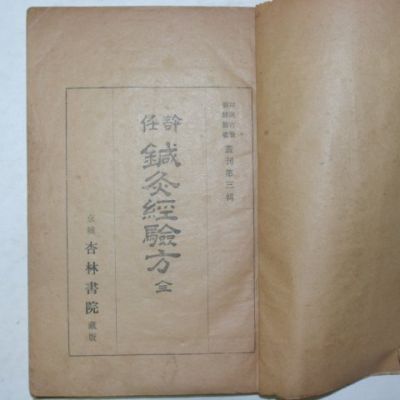 叢刊第三輯
許任
鍼灸經驗方 全
京城 杏林書院 藏版